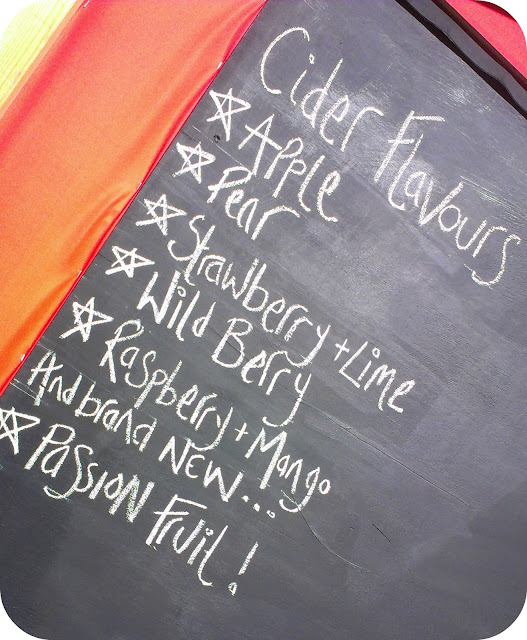 Cider Flavours
☆ Apple
☆ Pear
☆ Strawberry + Lime
☆ Wild Berry
☆ Raspberry + Mango
And brand NEW...
☆ PASSION FRUIT!